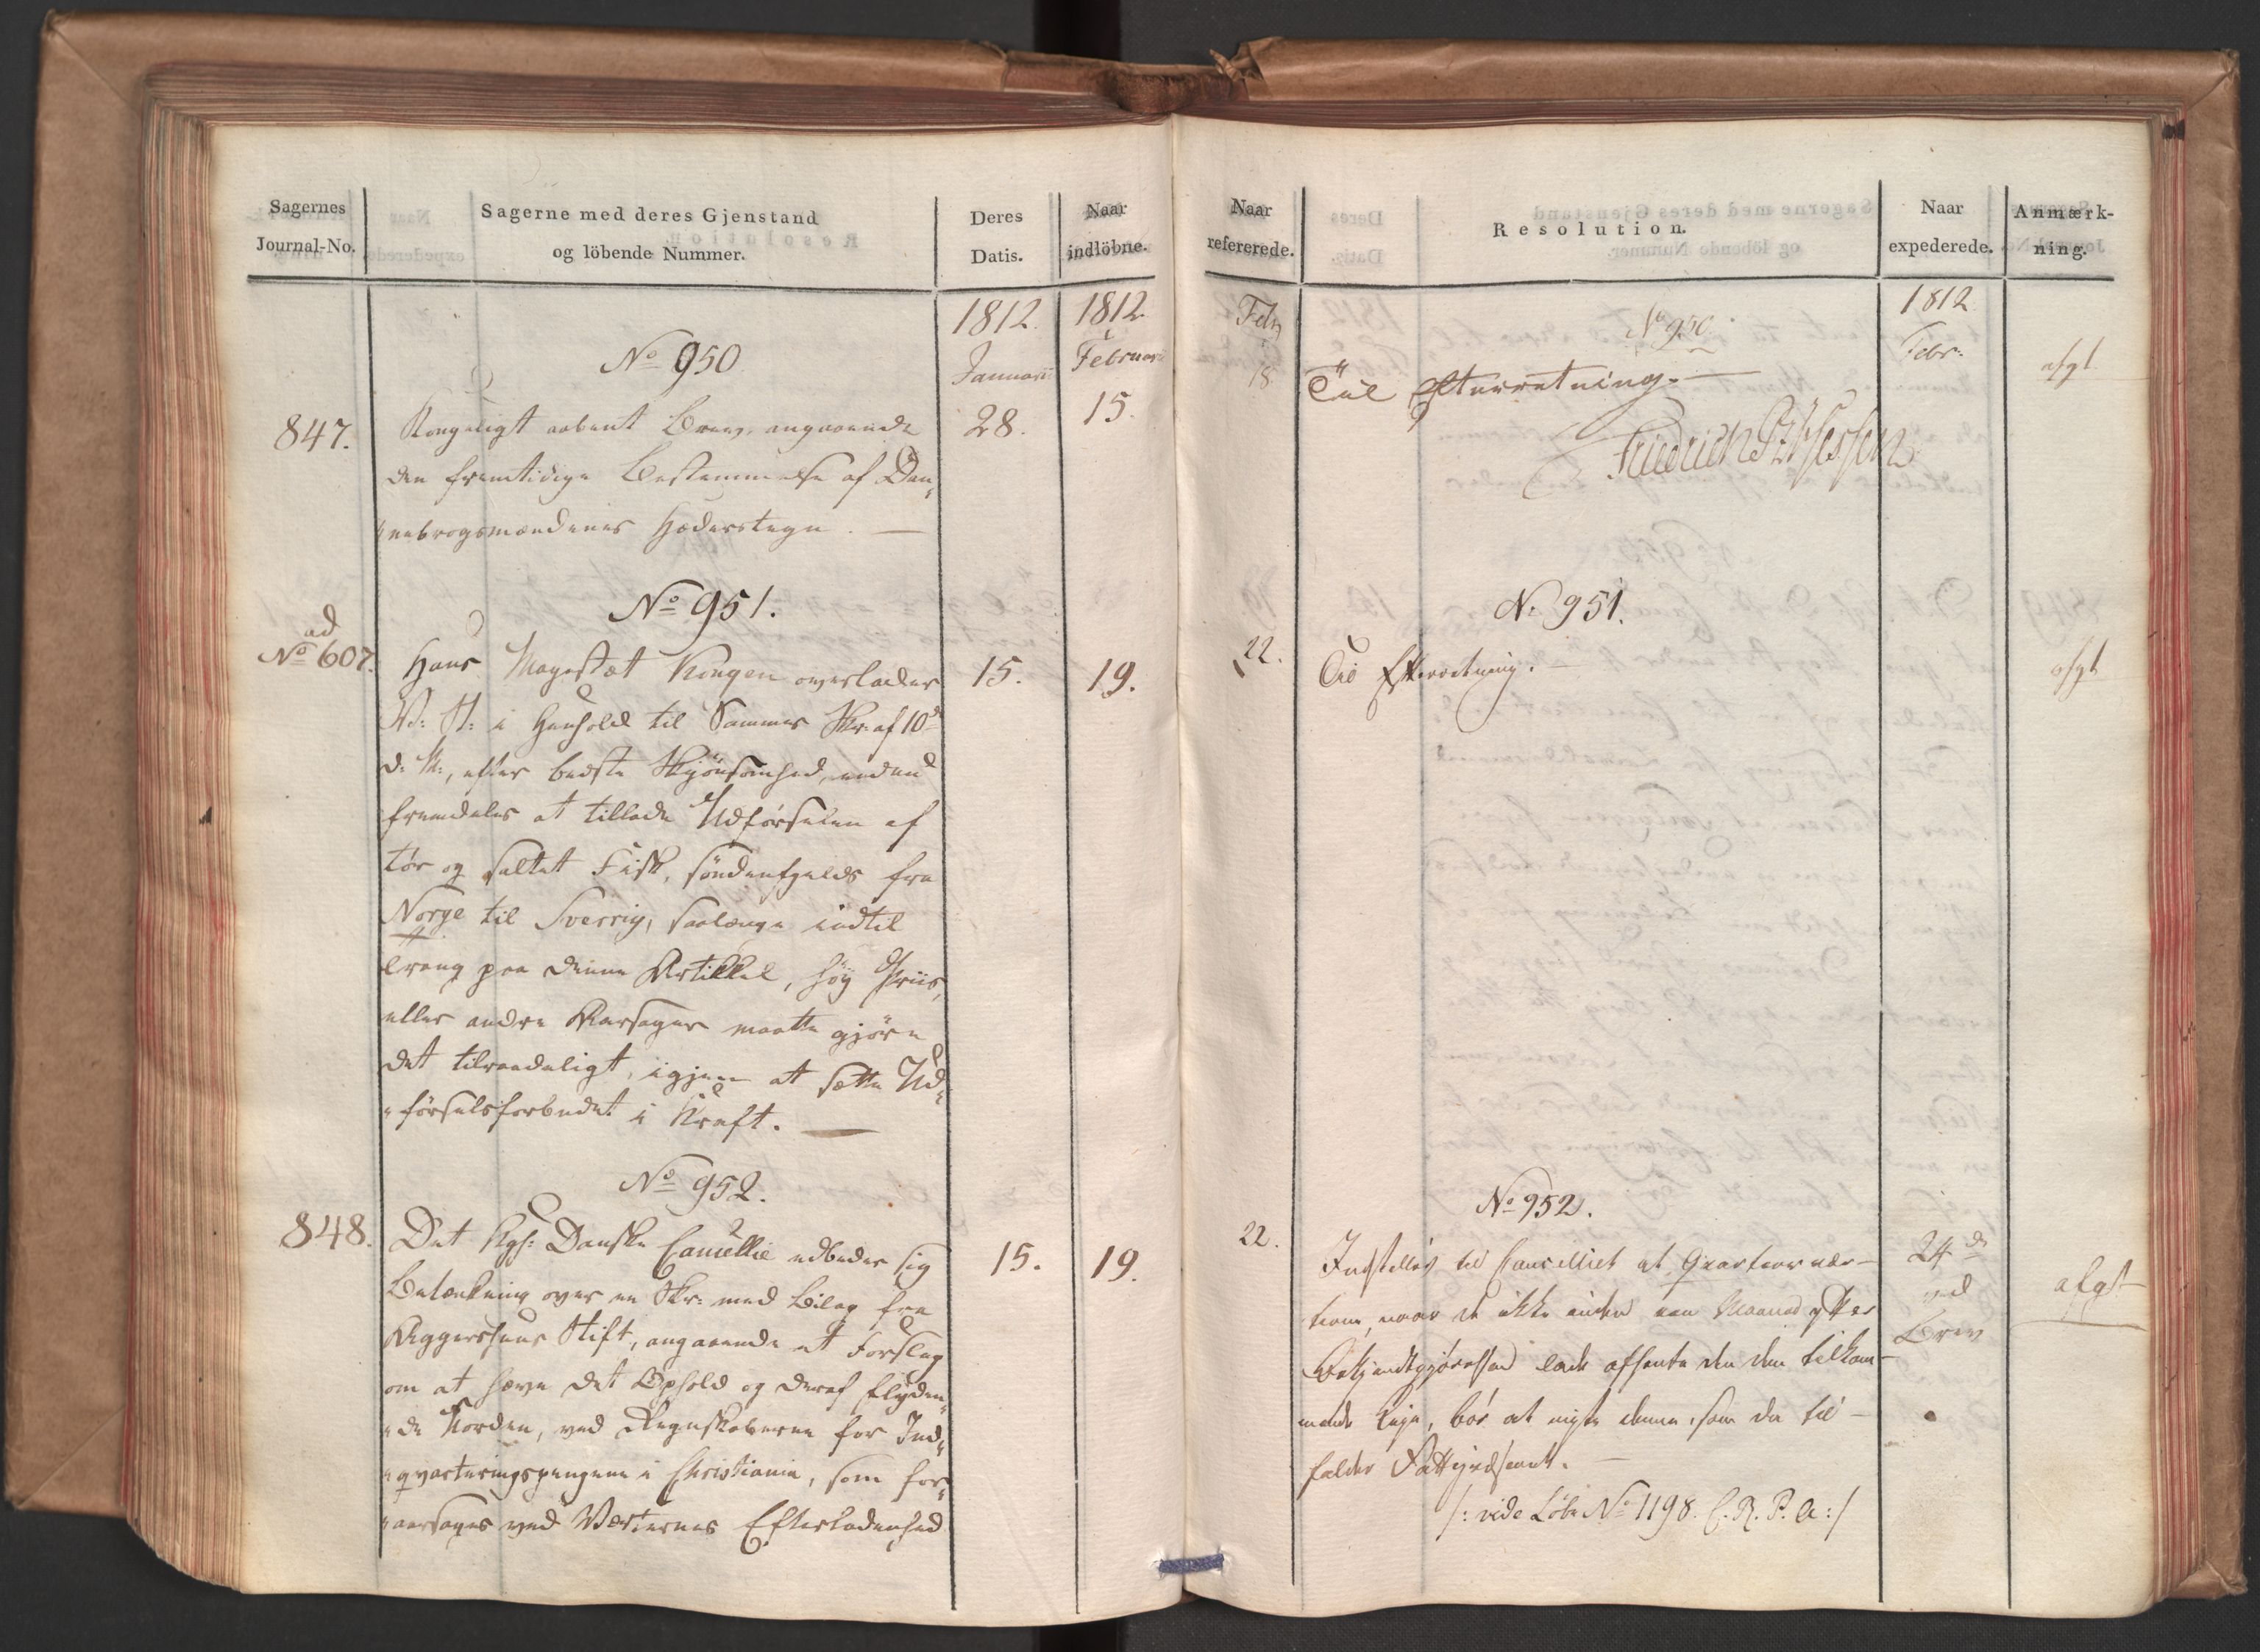 Sagernes
Journal-No.
Sagerne med deres Gjenstand
og löbende Nummer.
Deres
Datis.
Naar
indlöbne.
1812.
Januarii
1812.
Februari
No 950
847.
Kongeligt aabent Brev, angaaende
28.
15.
den fremtidige Bestemmelse af Dan„
„nebrogsmændenes Hæderstegn. —
No 951.
ad
No 607.
Hans Majestæt Kongen overlader
15.
19.
V: H: i Henhold til Sammes Skr. af 10de
d: M:, efter bedste Skjönsomhed, enten
fremdeles at tillade Udförselen af
tör og saltet Fisk, söndenfjelds fra
Norge til Sverrig, saalænge indtil
Trang paa denne Artikkel, höy Priis,
eller andre Aarsager maatte gjöre
det tilraadeligt, igjen at sætte Ud„
„förselsforbudet i Kraft. —
No 952.
848.
Det Kgl: Danske Cancellie udbeder sig
15.
19.
Betænkning over en Skr: med Bilag fra
Aggershuus Stift, angaaende et Forslag
om at hæve det Ophold og deraf flyden„
„de Uorden, ved Regnskaberne for Ind„
„qvarteringspengene i Christiania, som for„
„aarsages ved Værternes Efterladenhed
Naar
refererede.
Resolution.
Naar
expederede.
Anmærk-
ning.
Febr
18
No 950.
1812
Febr:
Til Efterretning. —
afgt
Friedrich PzHessen
No 951.
22.
Til Efterretning. —
afgt
No 952.
22.
Indstilles til Cancelliet at Qvarteervær-
24de
terne, naar de ikke inden een Maaned efter
ved
Bekjendtgjørelsen lade afhente den dem tilkom-
Brev
afgt
mende Leje, bör at miste denne, som da til-
falder Fattigvæsenet. —
/: vide Løbe No 1198. C. R. P. A :/